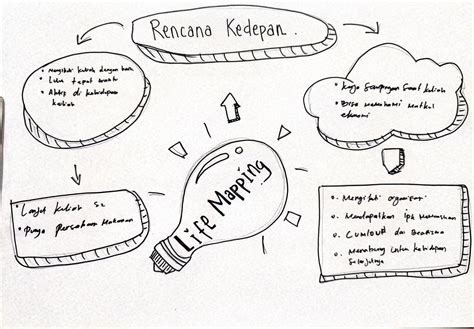 Rencana Kedepan.
• Mengikuti kuliah dengan baik
• Lulu tepat waktu
• Aktif di kehidupan kuliah
• Kerja Sampingan Saat kuliah
• Bisa memahami Matkul ekonomi
Life Mapping
• Lanjut kuliah S2
• Punya Perusahaan Makanan
o. Mengikuti organisasi
o. Mendapatkan Ipk memuaskan
o. CUMLOUD dan Beasiswa
o. Menabung untuk kehidupan
Selanjutnya